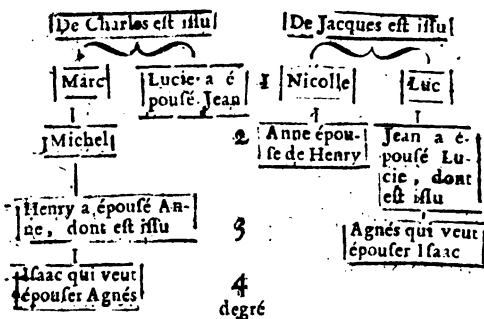 De Charles eſt iſſu
Marc
Lucie a é
pouſé Jean
Michel
Henry a épouſé An-
ne, dont eſt iſſu
Iſaac qui veut
épouſer Agnés
1
2
3
4
degré
De Jacques eſt iſſu
Nicolle
Luc
Anne épou-
ſe de Henry
Jean a é-
pouſé Lu-
cie, dont
eſt iſſu
Agnés qui veut
épouſer Iſaac